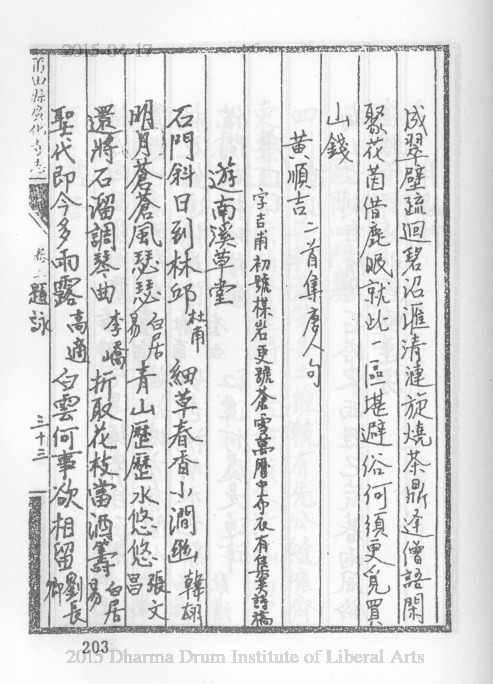 成翠壁疏迴碧沼滙清漣旋燒茶鼎逢僧語閑
聚花茵借鹿眠就此一區堪避俗何須更覓買
山錢
黃順吉 二首集唐人句
字吉甫初號楳岩更號蒼雪萬曆中布衣有集異詩稿
遊南溪草堂
石門斜日到林邱 杜甫 細草春香小澗幽 韓翃
明月蒼蒼風瑟瑟 白居易 青山歷歷水悠悠 張文昌
還將石溜調琴曲 李嶠 折取花枝當酒籌 白居易
聖代即今多雨露 高適 白雲何事欲相留 劉長卿
莆田縣廣化寺志 卷三 題詠 三十三
203
2015-04-17
2015 Dharma Drum Institute of Liberal Arts